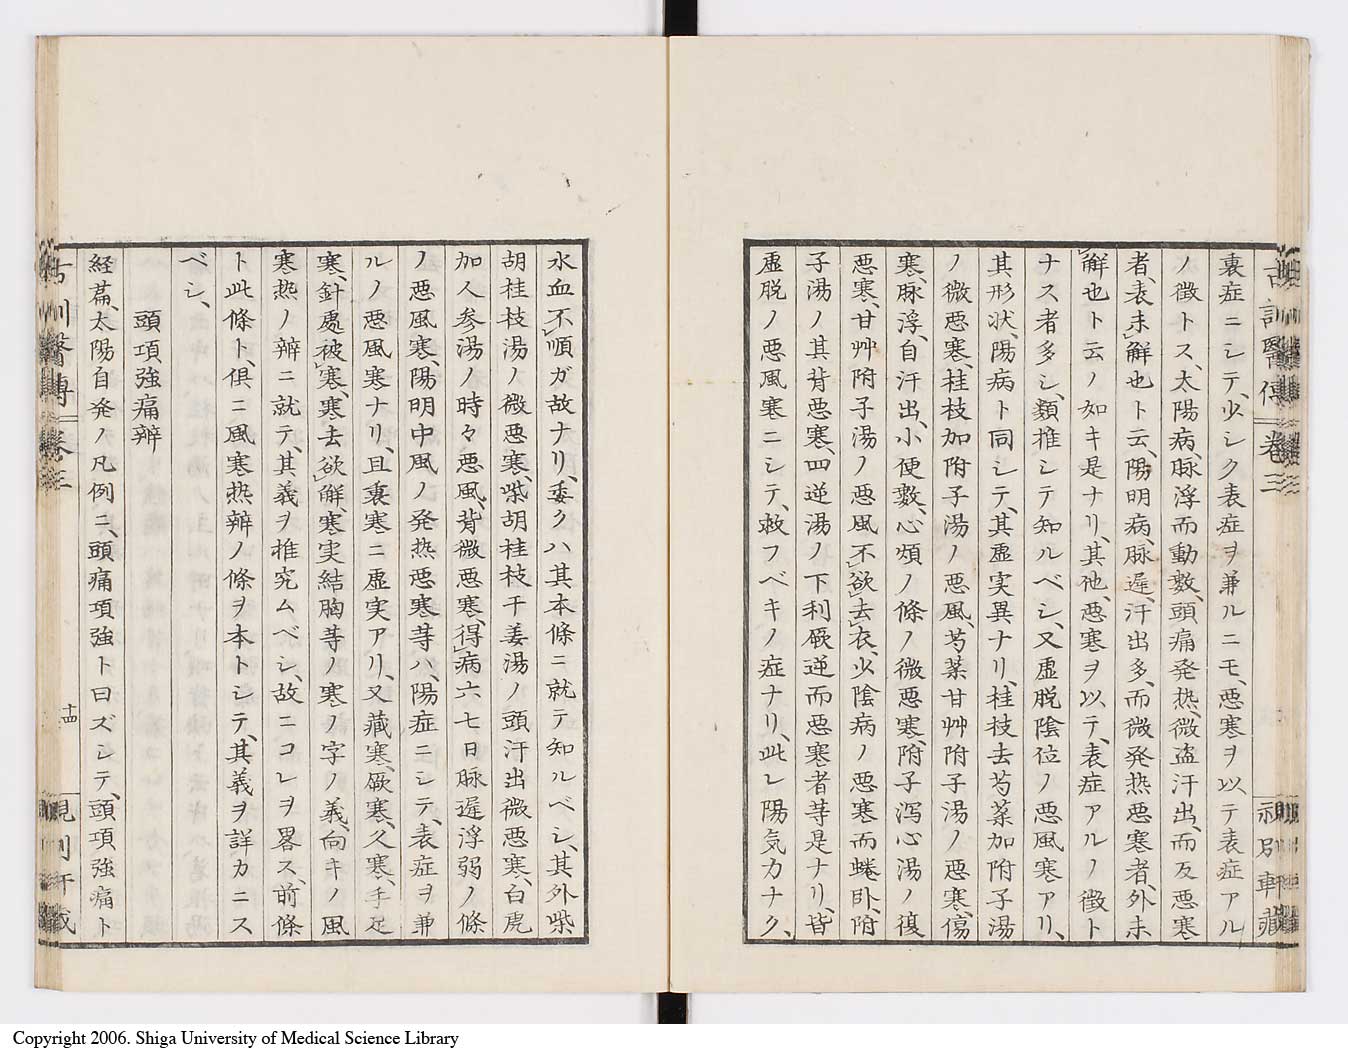 裏症ニシテ、少シク表症ヲ兼ルニモ、悪寒ヲ以テ表症アル
ノ徴トス、太陽病、脉浮而動数、頭痛発热、微盗汗出、而反悪寒
者、表未解也ト云、陽明病、脉遅、汗出多、而微発热悪寒者、外未
解也ト云ノ如キ是ナリ、其他、悪寒ヲ以テ、表症アルノ徴ト
ナス者多シ、類推シテ知ルベシ、又虚脱陰位ノ悪風寒アリ、
其形状、陽病ト同シテ、其虚実異ナリ、桂枝去芍薬加附子湯
ノ微悪寒、桂枝加附子湯ノ悪風、芍薬甘艸附子湯ノ悪寒、傷
寒、脉浮、自汗出、小便数、心煩ノ條ノ微悪寒、附子泻心湯ノ復
悪寒、甘艸附子湯ノ悪風不欲去衣、少陰病ノ悪寒而蜷卧、附
子湯ノ其背悪寒、四逆湯ノ下利厥逆而悪寒者䓁是ナリ、皆
虚脱ノ悪風寒ニシテ、救フベキノ症ナリ、此レ陽気カナク、
古訓醫傳 巻三
水血不順ガ故ナリ、委クハ其本條ニ就テ知ルベシ、其外柴
胡桂枝湯ノ微悪寒、柴胡桂枝干姜湯ノ頭汗出微悪寒、白虎
加人参湯ノ時々悪風、背微悪寒、得病六七日脉遅浮弱ノ條
ノ悪風寒、陽明中風ノ発热悪寒䓁ハ、陽症ニシテ、表症ヲ兼
ルノ悪風寒ナリ、且裏寒ニ虚実アリ、又藏寒、厥寒、久寒、手足
寒、針處被寒、寒去欲解、寒実結胸䓁ノ寒ノ字ノ義、向キノ風
寒热ノ辨ニ就テ、其義ヲ推究ムベシ、故ニコレヲ畧ス、前條
ト此條ト、倶ニ風寒热辨ノ條ヲ本トシテ、其義ヲ詳カニス
ベシ、
頭項強痛辨
経萹、太陽自発ノ凡例ニ、頭痛項強ト曰ズシテ、頭項強痛ト
巻三
十四
Copyright 2006. Shiga University of Medical Science Library